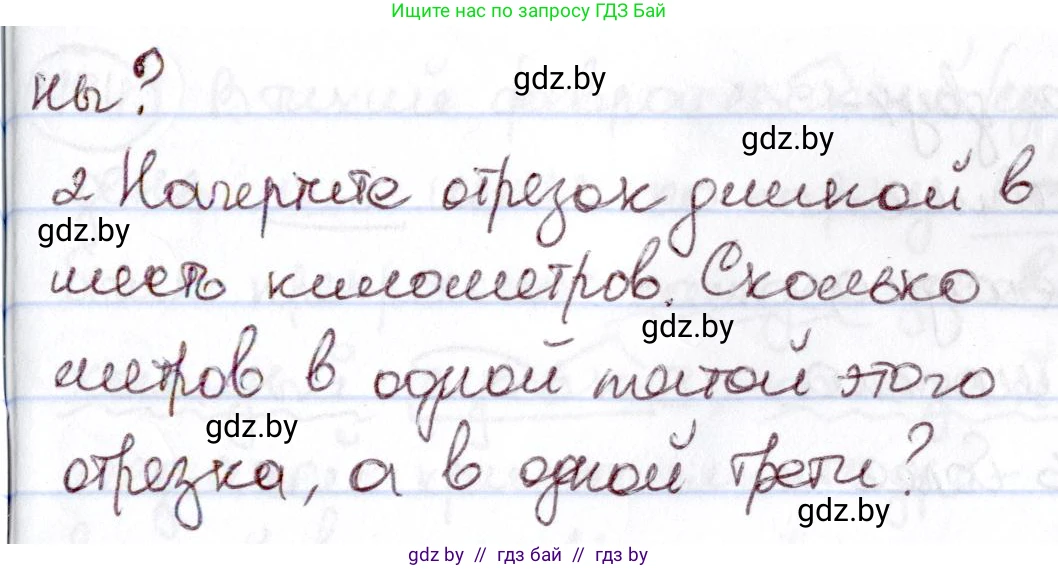 Ищите нас по запросу ГДЗ Бай
ны?
gdz.by
gdz.by
2. Начертите отрезок длиной в
gdz.by
шесть километров. Сколько
gdz.by
метров в одной пятой этого
gdz.by
отрезка, а в одной трети?
gdz.by
gdz.by // гдз бай // гдз by